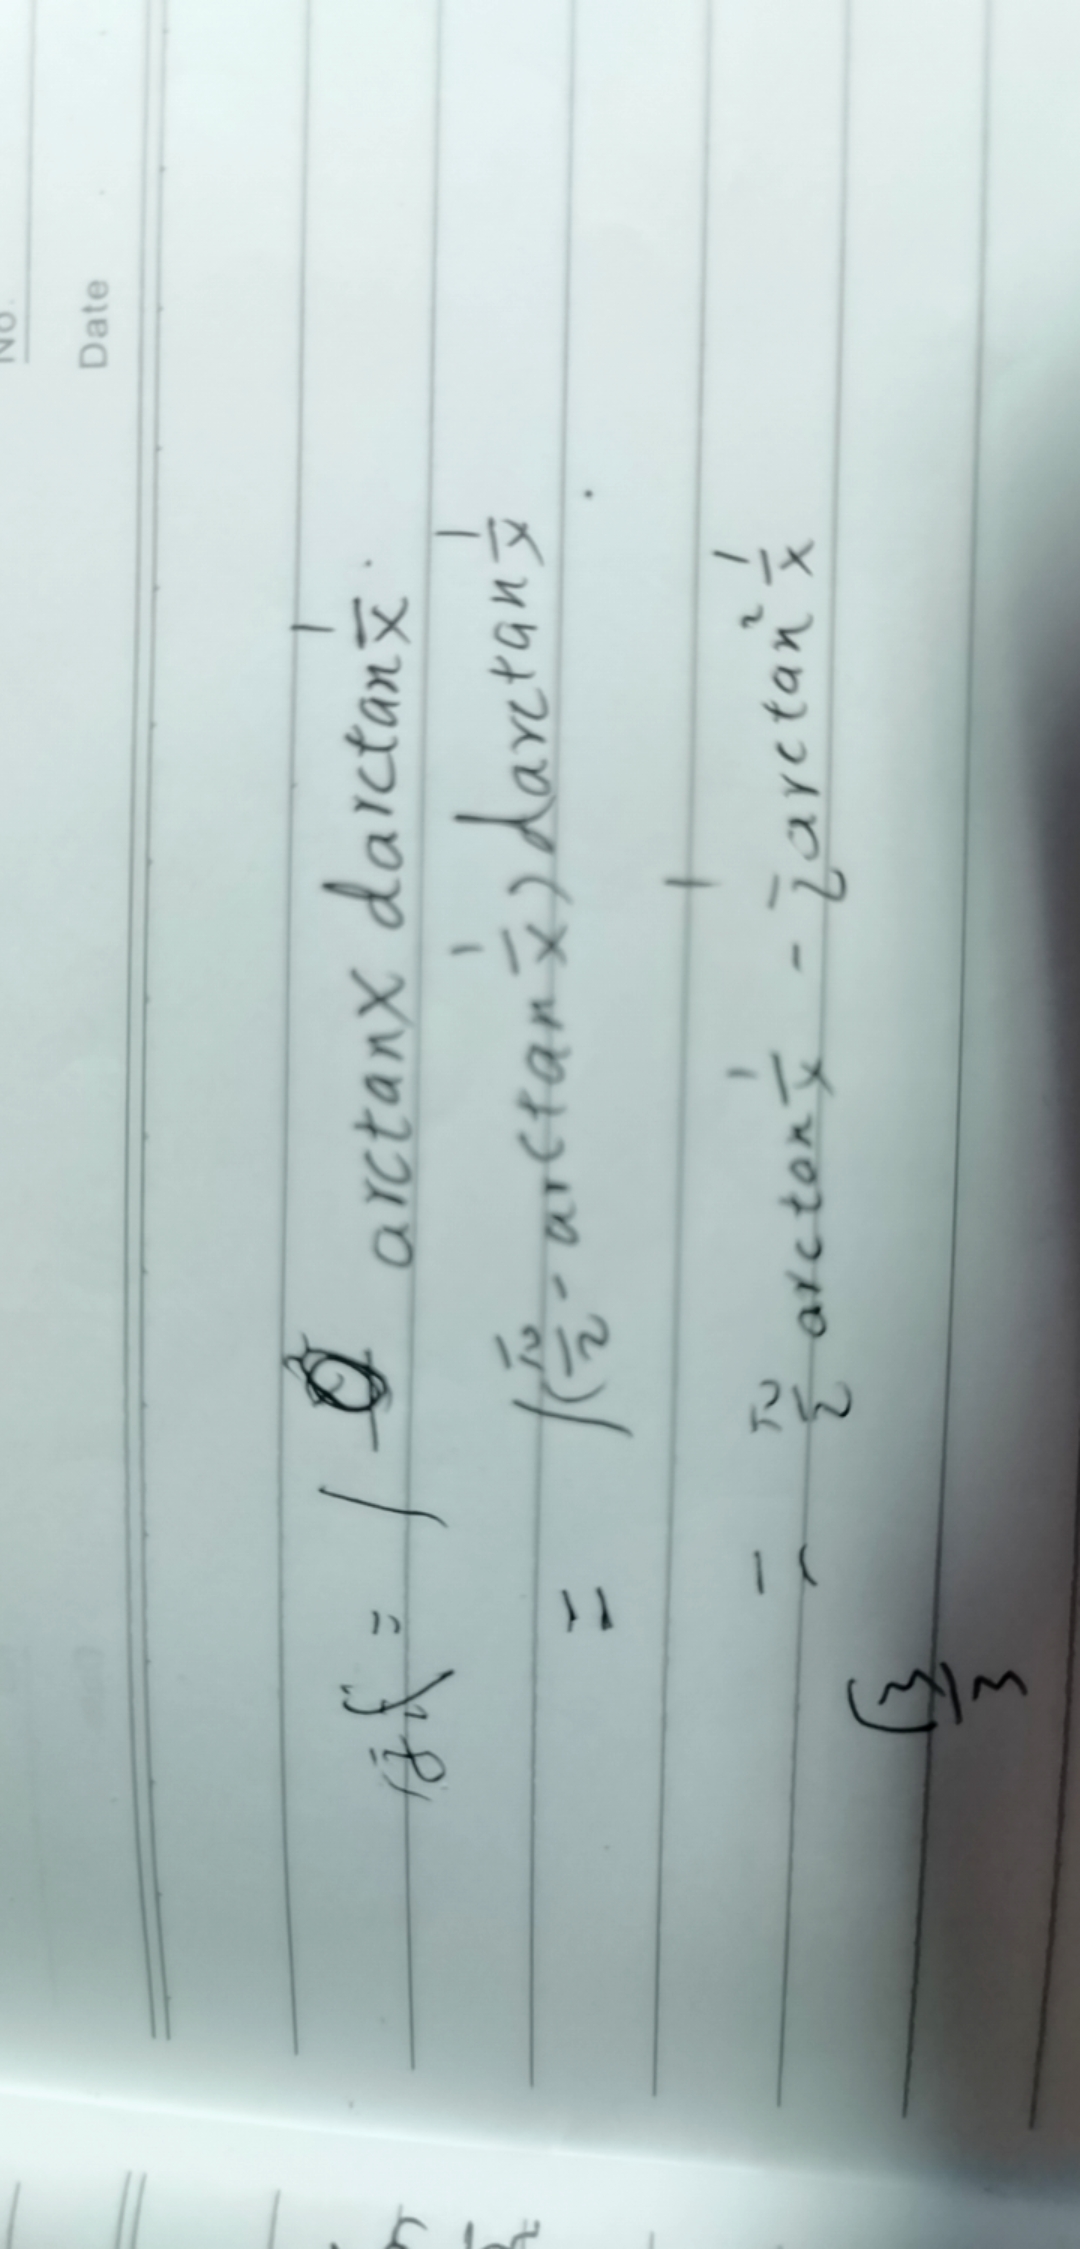 No.
Date
原式 = ∫ arctanx darctan 1/x.
= ∫(π/2 - arctan 1/x) darctan 1/x.
= π/2 arctan 1/x - 1/2 arctan² 1/x